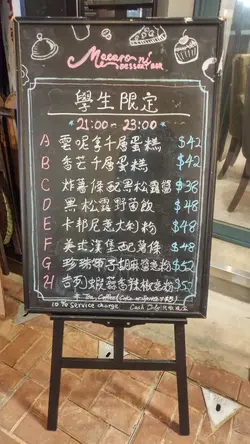 Macaroni
DESSERT BAR
學生限定
21:00 ~ 23:00
A 雪呢拿千層蛋糕 $42
B 香芒千層蛋糕 $42
C 炸薯條配黑松露醬 $38
D 黑松露野菌飯 $48
E 卡邦尼意大利粉 $48
F 美式漢堡西配薯條 $48
G 珍珠帶子胡麻醬意粉 $52
H 吉列蝦蒜香辣椒意粉 $52
10% service charge
Cash Only